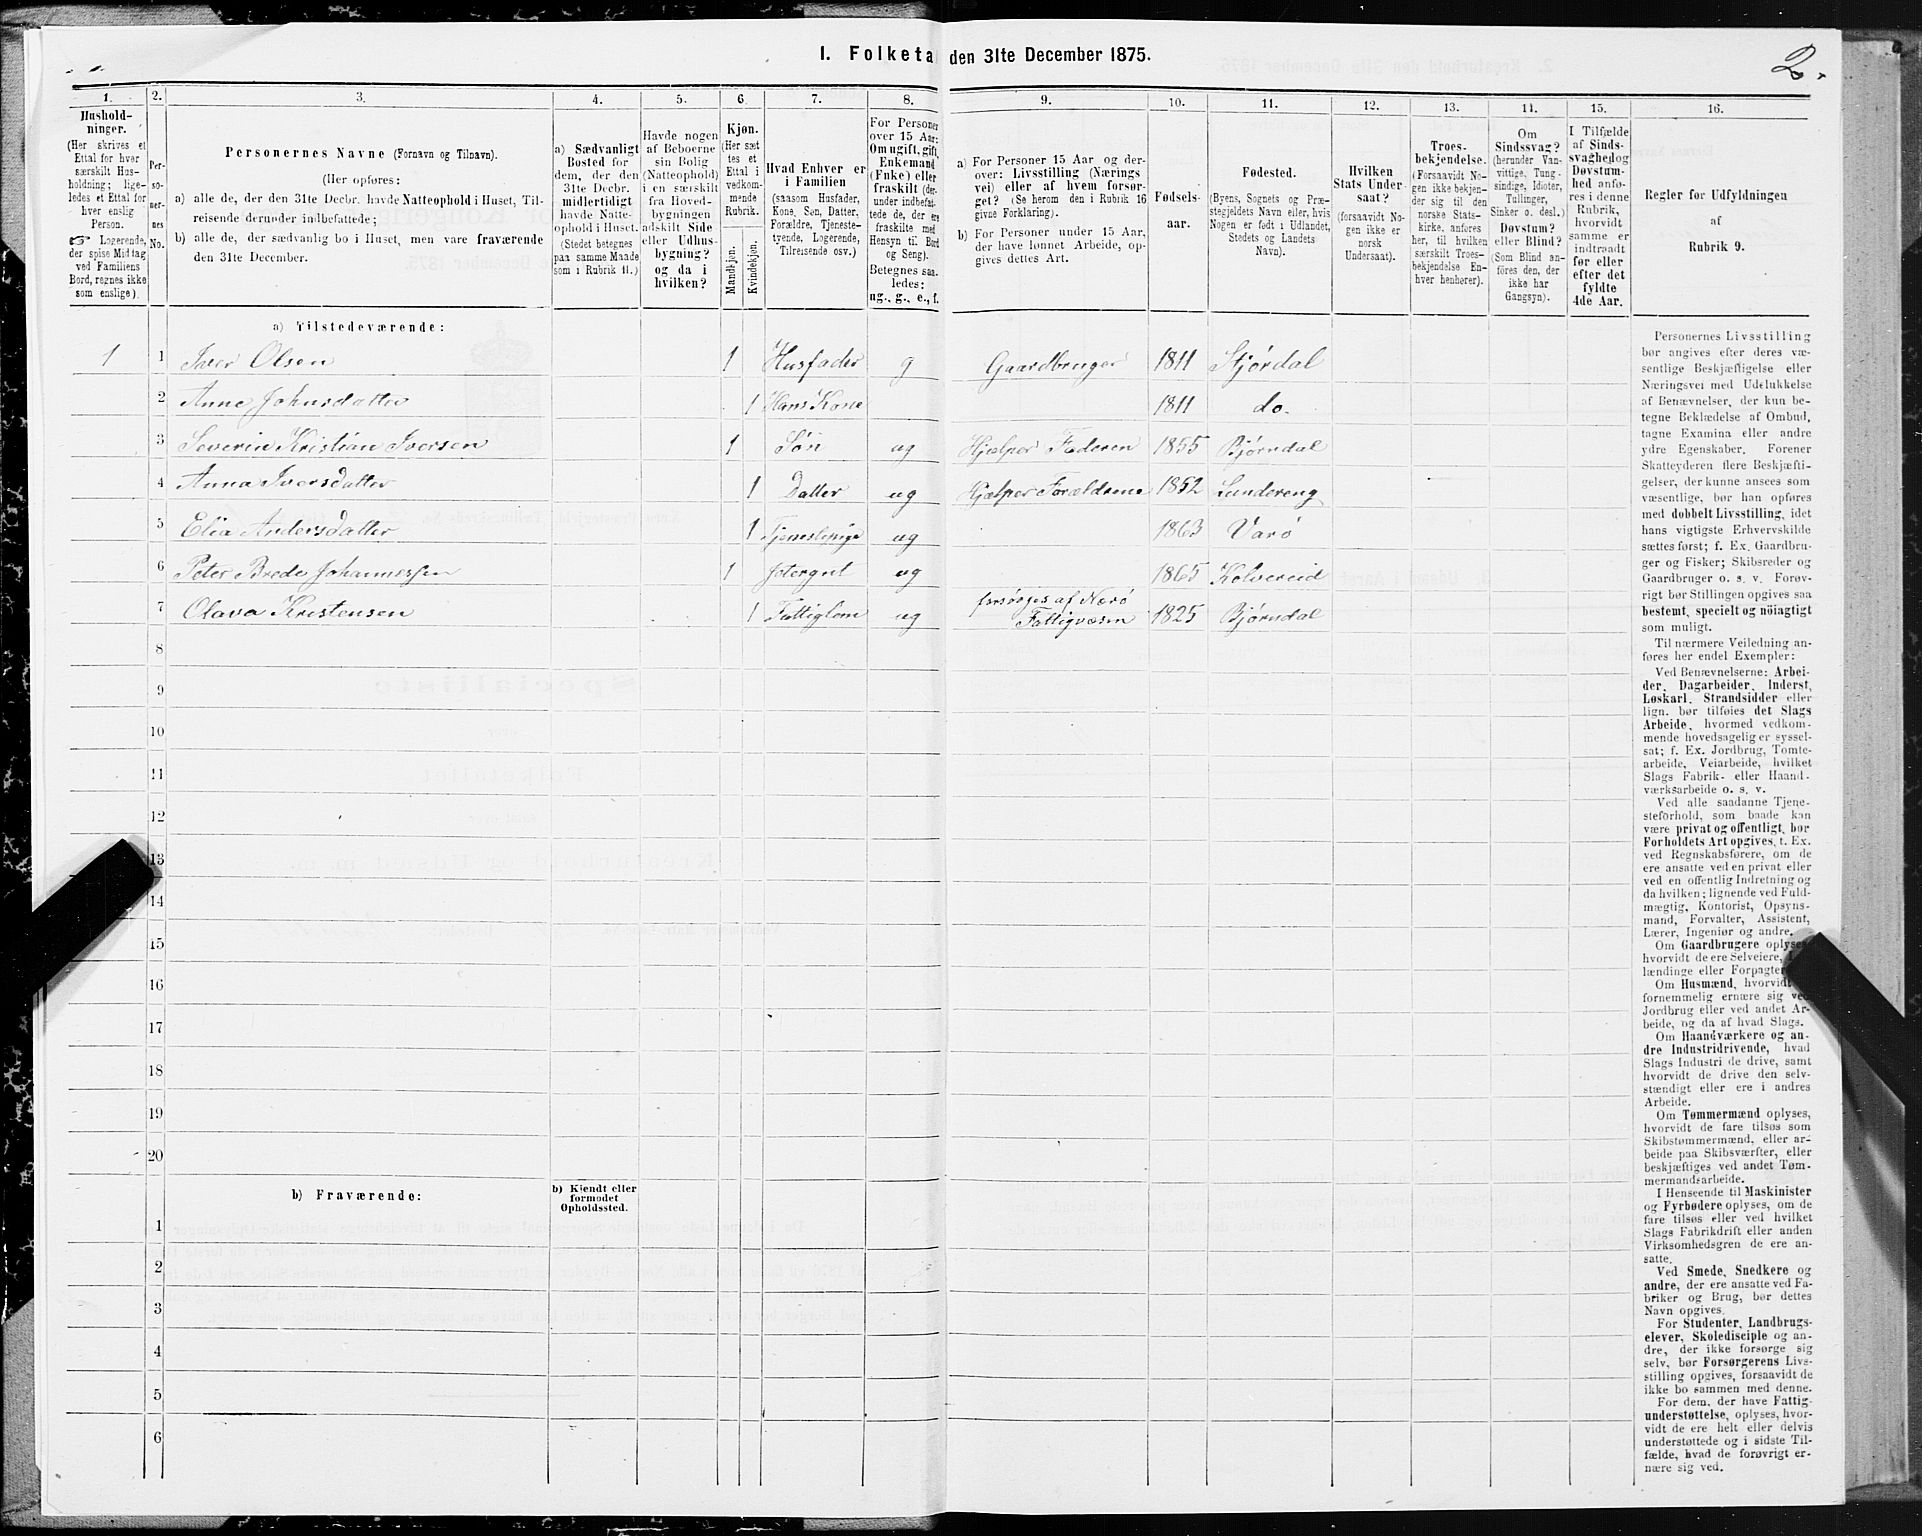 I. Folketa den 31te December 1875.
2.
1.
Hushold-
ninger.
(Her skrives et
Ettal for hver
særskilt Hus-
holdning; lige-
ledes et Ettal for
hver enslig
Person.
☞ Logerende,
der spise Middag
ved Familiens
Bord, regnes ikke
som enslige).
2.
Per-
so-
ner-
nes
No.
3.
Personernes Navne (Fornavn og Tilnavn).
(Her opføres:
a) alle de, der den 31te Decbr. havde Natteophold i Huset, Til-
reisende derunder indbefattede;
b) alle de, der sædvanlig bo i Huset, men vare fraværende
den 31te December.
4.
a) Sædvanligt
Bosted for
dem, der den
31te Decbr.
midlertidigt
havde Natte-
ophold i Huset.
(Stedet betegnes
paa samme Maade
som i Rubrik 11.)
5.
Havde nogen
af Beboerne
sin Bolig
(Natteophold)
i en særskilt
fra Hoved-
bygningen
adskilt Side
eller Udhus-
bygning?
og da i
hvilken?
6.
Kjøn.
(Her sæt
tes et
Ettal i
vedkom-
mende
Rubrik.
Mandkjøn.
Kvindekjøn.
7.
Hvad Enhver er
i Familien
(saasom Husfader,
Kone, Søn, Datter,
Forældre, Tjeneste-
tyende, Logerende,
Tilreisende osv.)
8.
For Personer
over 15 Aar:
Om ugift, gift,
Enkemand
(Enke) eller
fraskilt (der-
under indbefat-
tede de, der ere
fraskilte med
Hensyn til Bord
og Seng).
Betegnes saa-
ledes:
ug., g., e., f.
9.
a) For Personer 15 Aar og der-
over: Livsstilling (Nærings
vei) eller af hvem forsør-
get? (Se herom den i Rubrik 16
givne Forklaring).
b) For Personer under 15 Aar,
der have lønnet Arbeide, op-
gives dettes Art.
10.
Fødsels-
aar.
11.
Fødested.
(Byens, Sognets og Præ-
stegjeldets Navn eller, hvis
Nogen er født i Udlandet,
Stedets og Landets
Navn).
12.
Hvilken
Stats Under-
saat?
(forsaavidt No-
gen ikke er
norsk
Undersaat).
13.
Troes-
bekjendelse.
(Forsaavidt No-
gen ikke bekjen-
der sig til den
norske Stats-
kirke, anføres
her, til hvilken
særskilt Troes-
bekjendelse En-
hver henhører).
14.
Om
Sindssvag?
(herunder Van-
vittige, Tung-
sindige, Idioter,
Tullinger,
Sinker o. desl.)
Døvstum?
eller Blind?
(Som Blind an-
føres den, der
ikke har
Gangsyn).
15.
I Tilfælde
af Sinds-
svaghed og
Døvstum-
hed anfø-
res i denne
Rubrik,
hvorvidt
samme er
indtraadt
før eller
efter det
fyldte
4de Aar.
16.
Regler for Udfyldningen
af
Rubrik 9.
a) Tilstedeværende:
1 1 Iver Olsen 1 Husfader g Gaardbruger 1811 Stjørdal
2 Anne Johnsdatter 1 Hans Kone 1811 do.
3 Severin Kristian Iversen 1 Søn ug Hjælper Faderen 1855 Bjørndal
4 Anna Iversdatter 1 Datter ug Hjælper Forældrene 1852 Lundereng
5 Elia Andersdatter 1 Tjenestepige ug 1863 Varø
6 Peter Brede Johannessen 1 Jetergut ug 1865 Kolvereid
7 Olava Kristensen 1 Fattiglem ug forsørges af Nærø Fattigvæsen 1825 Bjørndal
8
9
10
11
12
13
14
15
16
17
18
19
20
b) Fraværende:
b) Kjendt eller
formodet
Opholdssted.
1
2
3
4
5
6
Personernes Livsstilling
bør angives efter deres væ-
sentlige Beskjæftigelse eller
Næringsvei med Udelukkelse
af Benævnelser, der kun be-
tegne Beklædelse af Ombud,
tagne Examina eller andre
ydre Egenskaber. Forener
Skatteyderen flere Beskjæfti-
gelser, der kunne ansees som
væsentlige, bør han opføres
med dobbelt Livsstilling, idet
hans vigtigste Erhvervskilde
sættes først; f. Ex. Gaardbru-
ger og Fisker; Skibsreder og
Gaardbruger o. s. v. Forøv-
rigt bør Stillingen opgives saa
bestemt, specielt og nöiagtigt
som muligt.
Til nærmere Veiledning an-
føres her endel Exempler:
Ved Benævnelserne: Arbei-
der, Dagarbeider, Inderst,
Løskarl, Strandsidder eller
lign. bør tilføies det Slags
Arbeide, hvormed vedkom-
mende hovedsagelig er syssel-
sat; f. Ex. Jordbrug, Tomte-
arbeide, Veiarbeide, hvilket
Slags Fabrik- eller Haand-
værksarbeide o. s. v.
Ved alle saadanne Tjene-
steforhold, som baade kan
være privat og offentligt, bør
Forholdets Art opgives, t. Ex.
ved Regnskabsførere, om de
ere ansatte ved en privat eller
ved en offentlig Indretning og
da hvilken; lignende ved Fuld-
mægtig, Kontorist, Opsyns-
mand, Forvalter, Assistent,
Lærer, Ingeniør og andre.
Om Gaardbrugere oplyses,
hvorvidt de ere Selveiere,
lændinge eller Forpagtere
Om Husmænd, hvorvidt
fornemmelig ernære sig ved
Jordbrug eller ved andet Ar-
beide, og da af hvad Slags.
Om Haandværkere og an-
dre Industridrivende, hvad
Slags Industri de drive, samt
hvorvidt de drive den selv-
stændigt eller ere i andres
Arbeide.
Om Tømmermænd oplyses,
hvorvidt de fare tilsøs som
Skibstømmermænd, eller ar-
beide paa Skibsværfter, eller
beskjæftiges ved andet Tøm-
mermandsarbeide.
I Henseende til Maskinister
og Fyrbødere oplyses, om de
fare tilsøs eller ved hvilket
Slags Fabrikdrift eller anden
Virksomhedsgren de ere an-
satte.
Ved Smede, Snedkere og
andre, der ere ansatte ved Fa-
briker og Brug, bør dettes
Navn opgives.
For Studenter, Landbrugs-
elever, Skoledisciple og an-
dre, der ikke forsørge sig
selv, bør Forsørgerens Livs-
stilling opgives, forsaavidt de
ikke bo sammen med denne.
For dem, der have Fattig-
understøttelse, oplyses, hvor-
vidt de ere helt eller delvis
understøttede og i sidste Til-
fælde, hvad de forøvrigt er-
nære sig ved.